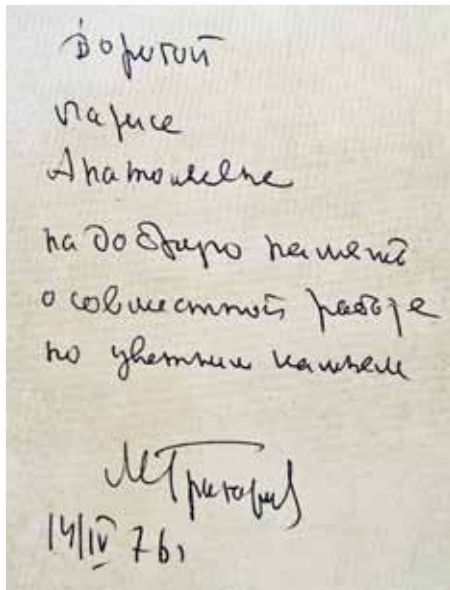 Дорогой
Ларисе
Анатольевне
на добрую память
о совместной работе
по цветным камням
МГригорьев
14/IV 76г